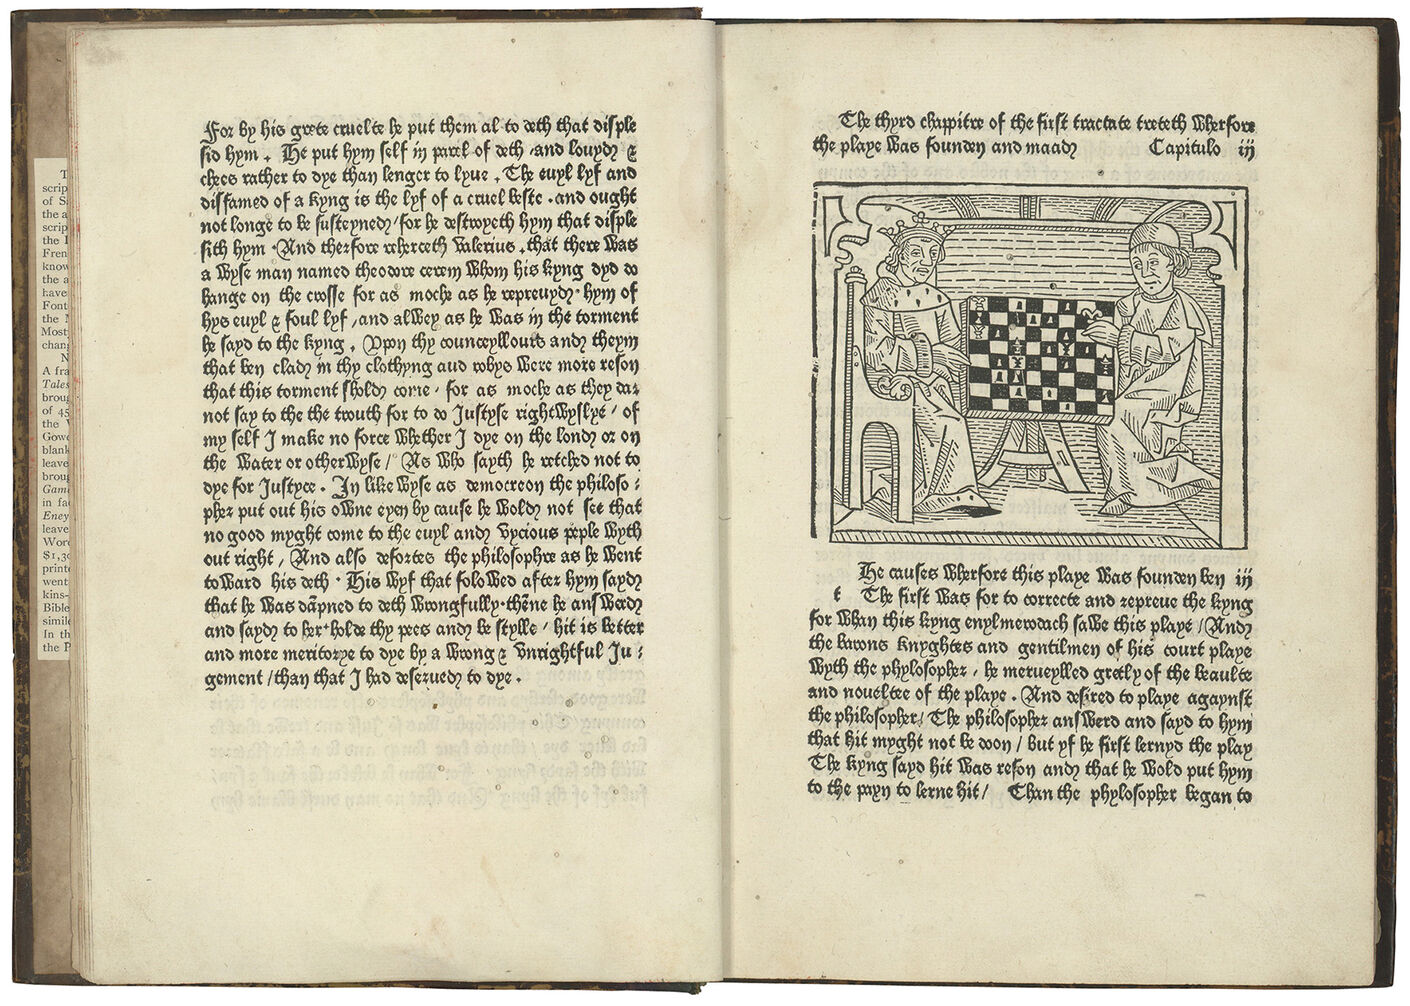 T
scrip
of Sa
the a
scrip
the I
Fren
know
the a
have
Font
the M
Most
chan
N
A fra
Tales
broug
of 45
the V
Gowe
blank
leave
broug
Game
in fac
Eney
leave
Word
$1,30
printe
went
kins-
Bible
simile
In th
the P
For by his grete cruelte he put them al to deth that disple
sid hym . He put hym self in parel of deth /and louyd &
chees rather to dye than lenger to lyue . The euyl lyf and
disfamed of a kyng is the lyf of a cruel beste . and ought
not longe to be susteyned / for he destroyeth hym that disple
sith hym . And therfore reherceth Valerius , that there was
a wyse man named theodore cerem whom his kyng dyd do
hange on the crosse for as moche as he repreuyd . hym of
hys euyl & foul lyf , and alwey as he was in the torment
he sayd to the kyng . Vpon thy counceyllours and theym
that ben clad in thy clothyng and robys were more reson
that this torment shold come . for as moche as they dar
not say to the the trouth for to do Justyse rightwysly / of
my self I make no force whether I dye on the lond or on
the water or otherwyse / As who sayth he retched not to
dye for Justyce . In like wyse as democreon the philoso :
pher put out his owne eyen by cause he wold not see that
no good myght come to the euyl and vycious peple wyth
out right , And also defortes the philosophre as he went
toward his deth . His wyf that folowed after hym sayd
that he was dāpned to deth wrongfully . thēne he answerd
and sayd to her . holde thy pees and be stylle / hit is better
and more meritorye to dye by a wrong & vnrightful Ju :
gement / than that I had deserued to dye .
The thyrd chappitre of the first tractate treteth wherfore
the playe was founden and maad Capitulo iij
He causes wherfore this playe was founden ben iij
t The first was for to correcte and repreue the kyng
for whan this kyng enylmerodach sawe this playe / And
the barons knyghtes and gentilmen of his court playe
wyth the phylosopher , he merueylled gretly of the beaulte
and noueltee of the playe . And desired to playe agaynst
the philosopher / The philosopher answerd and sayd to hym
that hit myght not be don / but yf he first lernyd the play
The kyng sayd hit was reson and that he wold put hym
to the payn to lerne hit / Than the phylosopher began to